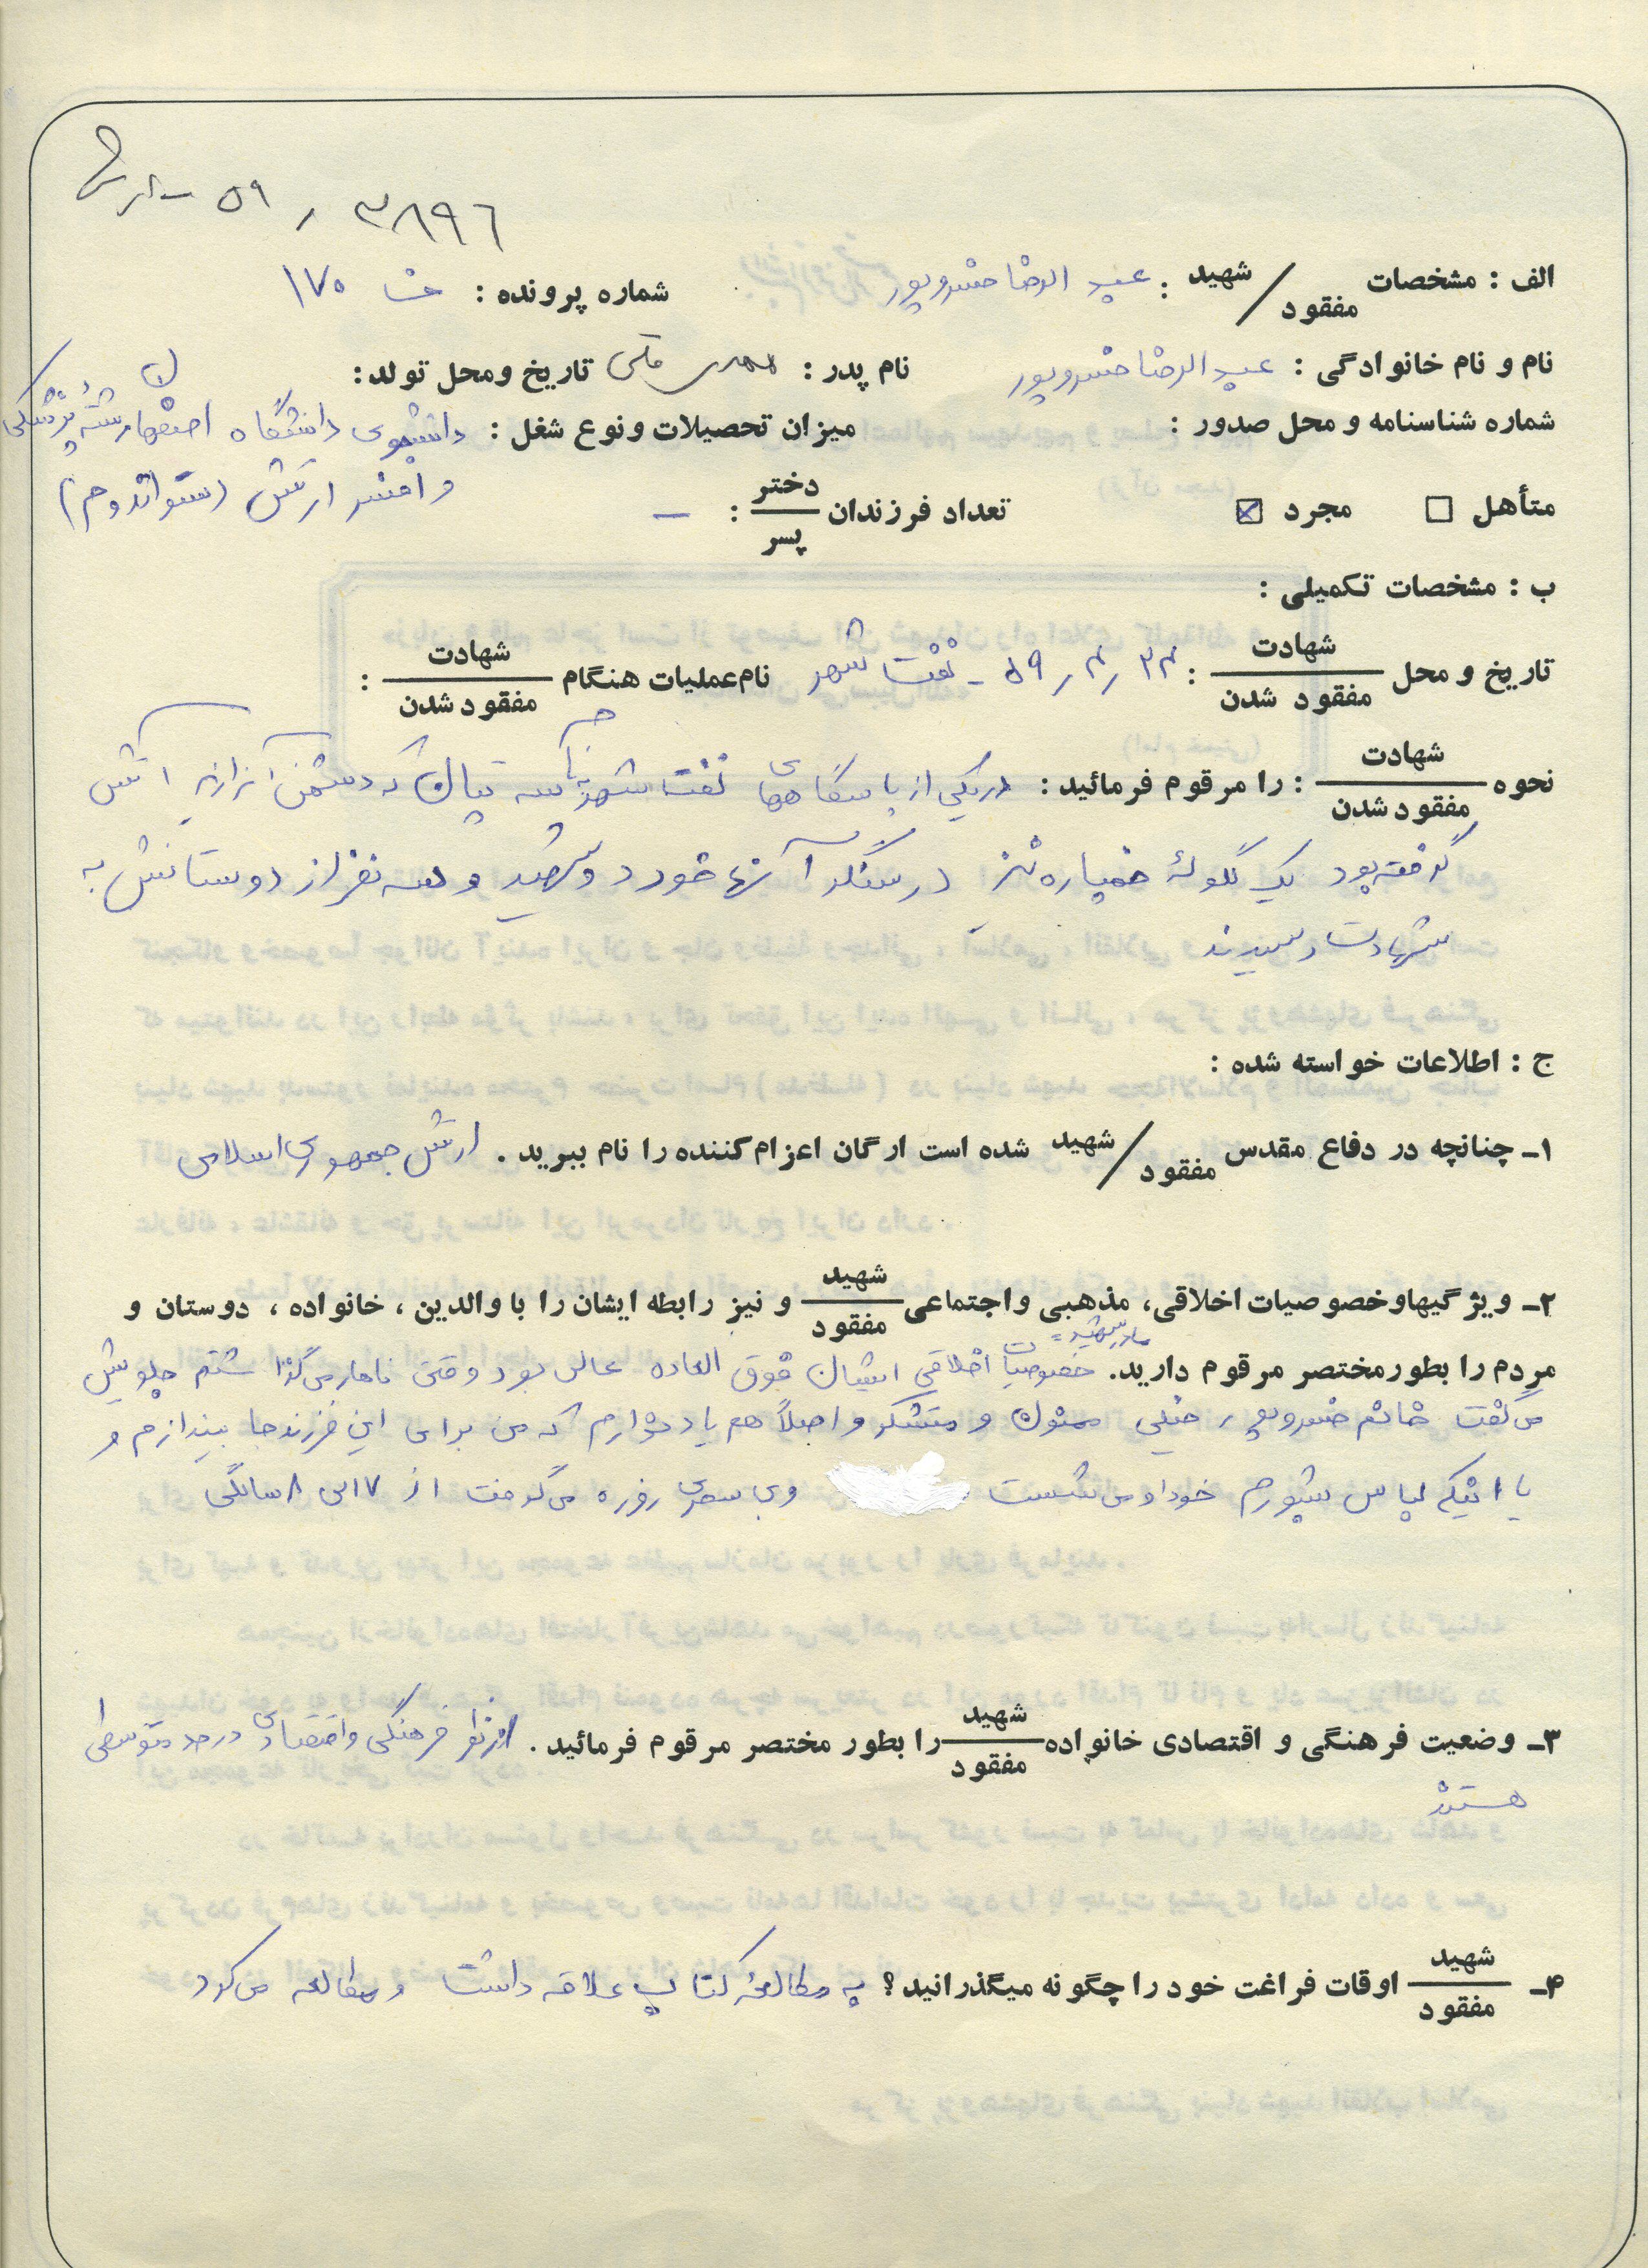 ۳۸۹۶ / ۵۹ - ارتش
الف : مشخصات شهید / مفقود : عبدالرضا خسروپور شماره پرونده : خـ ۱۷۰
نام و نام خانوادگی : عبدالرضا خسروپور نام پدر : مهدی قلی تاریخ ومحل تولد :
شماره شناسنامه و محل صدور : میزان تحصیلات ونوع شغل : دانشجوی دانشگاه اصفهان رشته پزشکی
و افسر ارتش (ستواندوم)
متأهل ☐ مجرد ☒ تعداد فرزندان دختر / پسر : –
ب : مشخصات تکمیلی :
تاریخ و محل شهادت / مفقود شدن : ۵۹/۴/۲۴ - نفت شهر نام عملیات هنگام شهادت / مفقود شدن :
نحوه شهادت / مفقود شدن : را مرقوم فرمائید : در یکی از پاسگاههای نفت شهر بنام سه تپان که دشمن آنرا زیر آتش
گرفته بود یک گلوله خمپاره نیز در سنگر آنها خورد و شهید و سه نفر از دوستانش به
شهادت رسیدند
ج : اطلاعات خواسته شده :
۱ـ چنانچه در دفاع مقدس شهید / مفقود شده است ارگان اعزام کننده را نام ببرید . ارتش جمهوری اسلامی
۲ـ ویژگیهاوخصوصیات اخلاقی، مذهبی واجتماعی شهید / مفقود و نیز رابطه ایشان را با والدین ، خانواده ، دوستان و
مادر شهید =
مردم را بطورمختصر مرقوم دارید. خصوصیات اخلاقی ایشان فوق العاده عالی بود وقتی ناهار می گذاشتم جلویش
می گفت خانم خسروپور خیلی ممنون و متشکر و اصلاً هم یاد ندارم که من برای این فرزند جا بیندازم و
یا اینکه لباس بشورم خود او می شست وبی سحری روزه می گرفت از ۷ الی ۸ سالگی
۳ـ وضعیت فرهنگی و اقتصادی خانواده شهید / مفقود را بطور مختصر مرقوم فرمائید . از نظر فرهنگی و اقتصادی در حد متوسطی
هستند
۴ـ شهید / مفقود اوقات فراغت خود را چگونه میگذرانید ؟ به مطالعه کتاب علاقه داشت و مطالعه می کرد